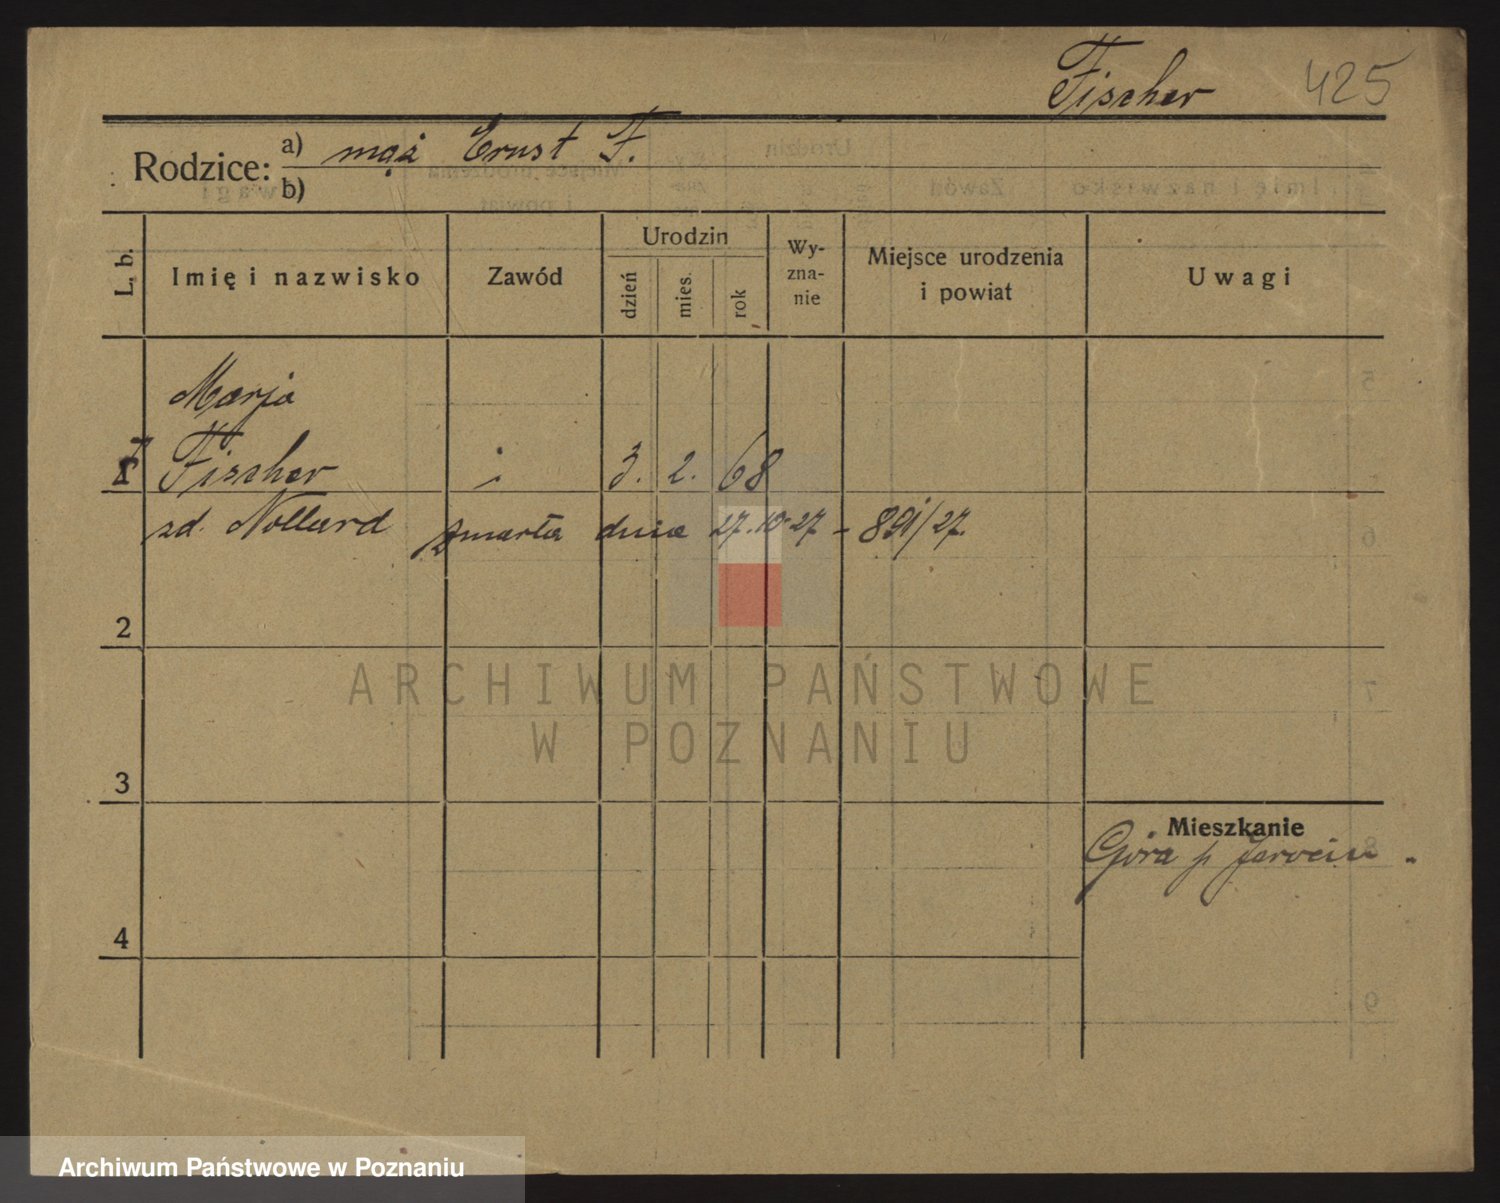 Fischer 425
Rodzice: a) mąż Ernst F.
b)
L. b.
Imię i nazwisko
Zawód
Urodzin
dzień
mies.
rok
Wy-
zna-
nie
Miejsce urodzenia
i powiat
Uwagi
Marja
1 Fischer i 3. 2. 68
zd. Nollard zmarła dnia 27.10.27 - 891/27.
2
3
4
Mieszkanie
Góra p Jarocin
ARCHIWUM PAŃSTWOWE
W POZNANIU
Archiwum Państwowe w Poznaniu